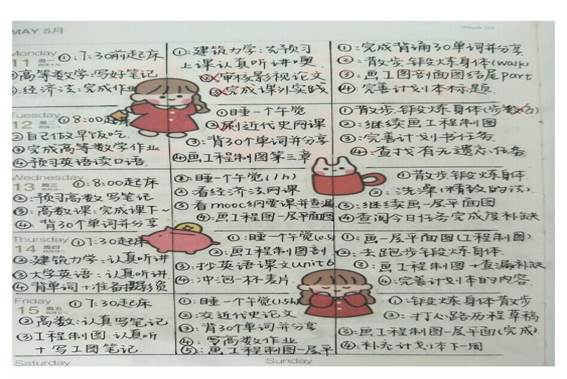 MAY 5月
Monday
11
①:7:30前起床
②高等数学:写好笔记
③.经济法:完成作业
①:建筑力学:去预习
上课认真听讲
②审核影视论文
③完成课外实践
①:完成背诵30单词并分享
②:散步、锻炼身体(walk)
③:画工图剖面图结尾part
④:完善计划本标题
Tuesday
12
①8:00起床
②自己做早饭吃
③完成高等数学作业
④预习英语读口语
①睡一个午觉
②刷近代史网课
③:背30个单词并分享
④画工程制图第三章
①散步、锻炼身体
②:继续画工程制图
③:完善计划书任务
④:查找有无遗忘任务
Wednesday
13
①:8:00起床
②:预习高数写笔记
③:高数课:完成课下
④背30个单词并分享
①:睡一个午觉(1h)
②看经济法网课
③看mooc网爱课并查漏
④:画工程图一层平面图
①散步锻炼身体
②:洗澡
③:继续画一层平面图
④查阅今日任务完成度补缺
Thursday
14
①7:30起床
②:建筑力学:认真听讲
③大学英语:认真听讲
④背单词+准备
①:睡一个午觉
②:画工程制图剖
③:抄英语课文unit6
④:冲泡一杯麦片
①:画一层平面图(工程制图)
②:去跑步锻炼身体
③:画工程制图+查漏补缺
④:完善计划本的内容
Friday
15
①7:30起床
②高数:认真写笔记
③工程制图:认真听
+写工图笔记
①:睡一个午觉
②:交近代史论文
③:背30个单词并分享
④:写高数作业
⑤:画工程制图一层平
①:锻炼身体散步
②:打心路历程草稿
③:画工程制图一层平面(完成)
④:补充计划本下一周
Saturday
Sunday